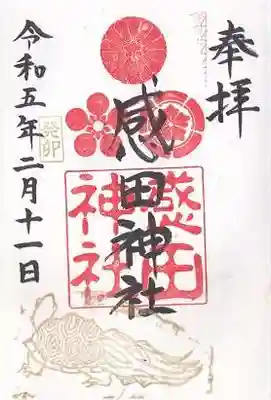 奉拝
感田神社
感田神社
令和五年二月十一日